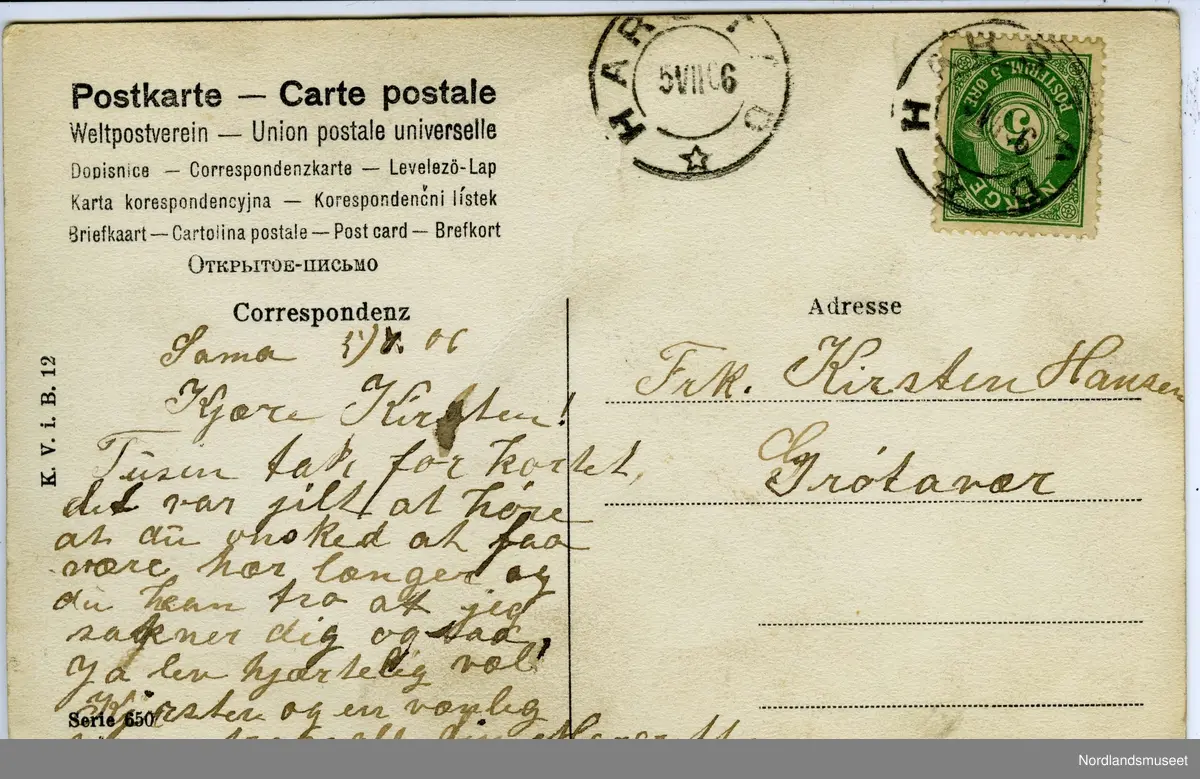 Postkarte — Carte postale
Weltpostverein — Union postale universelle
Dopisnice — Correspondenzkarte — Levelező-Lap
Karta korespondencyjna — Korespondenčni lístek
Briefkaart — Cartolina postale — Post card — Brefkort
Открытое-письмо
Correspondenz
Sama 5/7. 06
Kjære Kirsten!
Tusin tak for kortet,
det var jilt at høre
at du ønsked at faa
være hær længer og
du kan tro at jeg
sakner dig og saa,
Ja lev hjærtelig væl
Kjirsten og en vænlig
K. V. i. B. 12
Serie 650
HARSTAD
5 VII 06
HARSTAD
POSTFRIM. 5 ØRE
5
NORGE
Adresse
Frk. Kirsten Hansen
Grótavær
Nordlandsmuseet